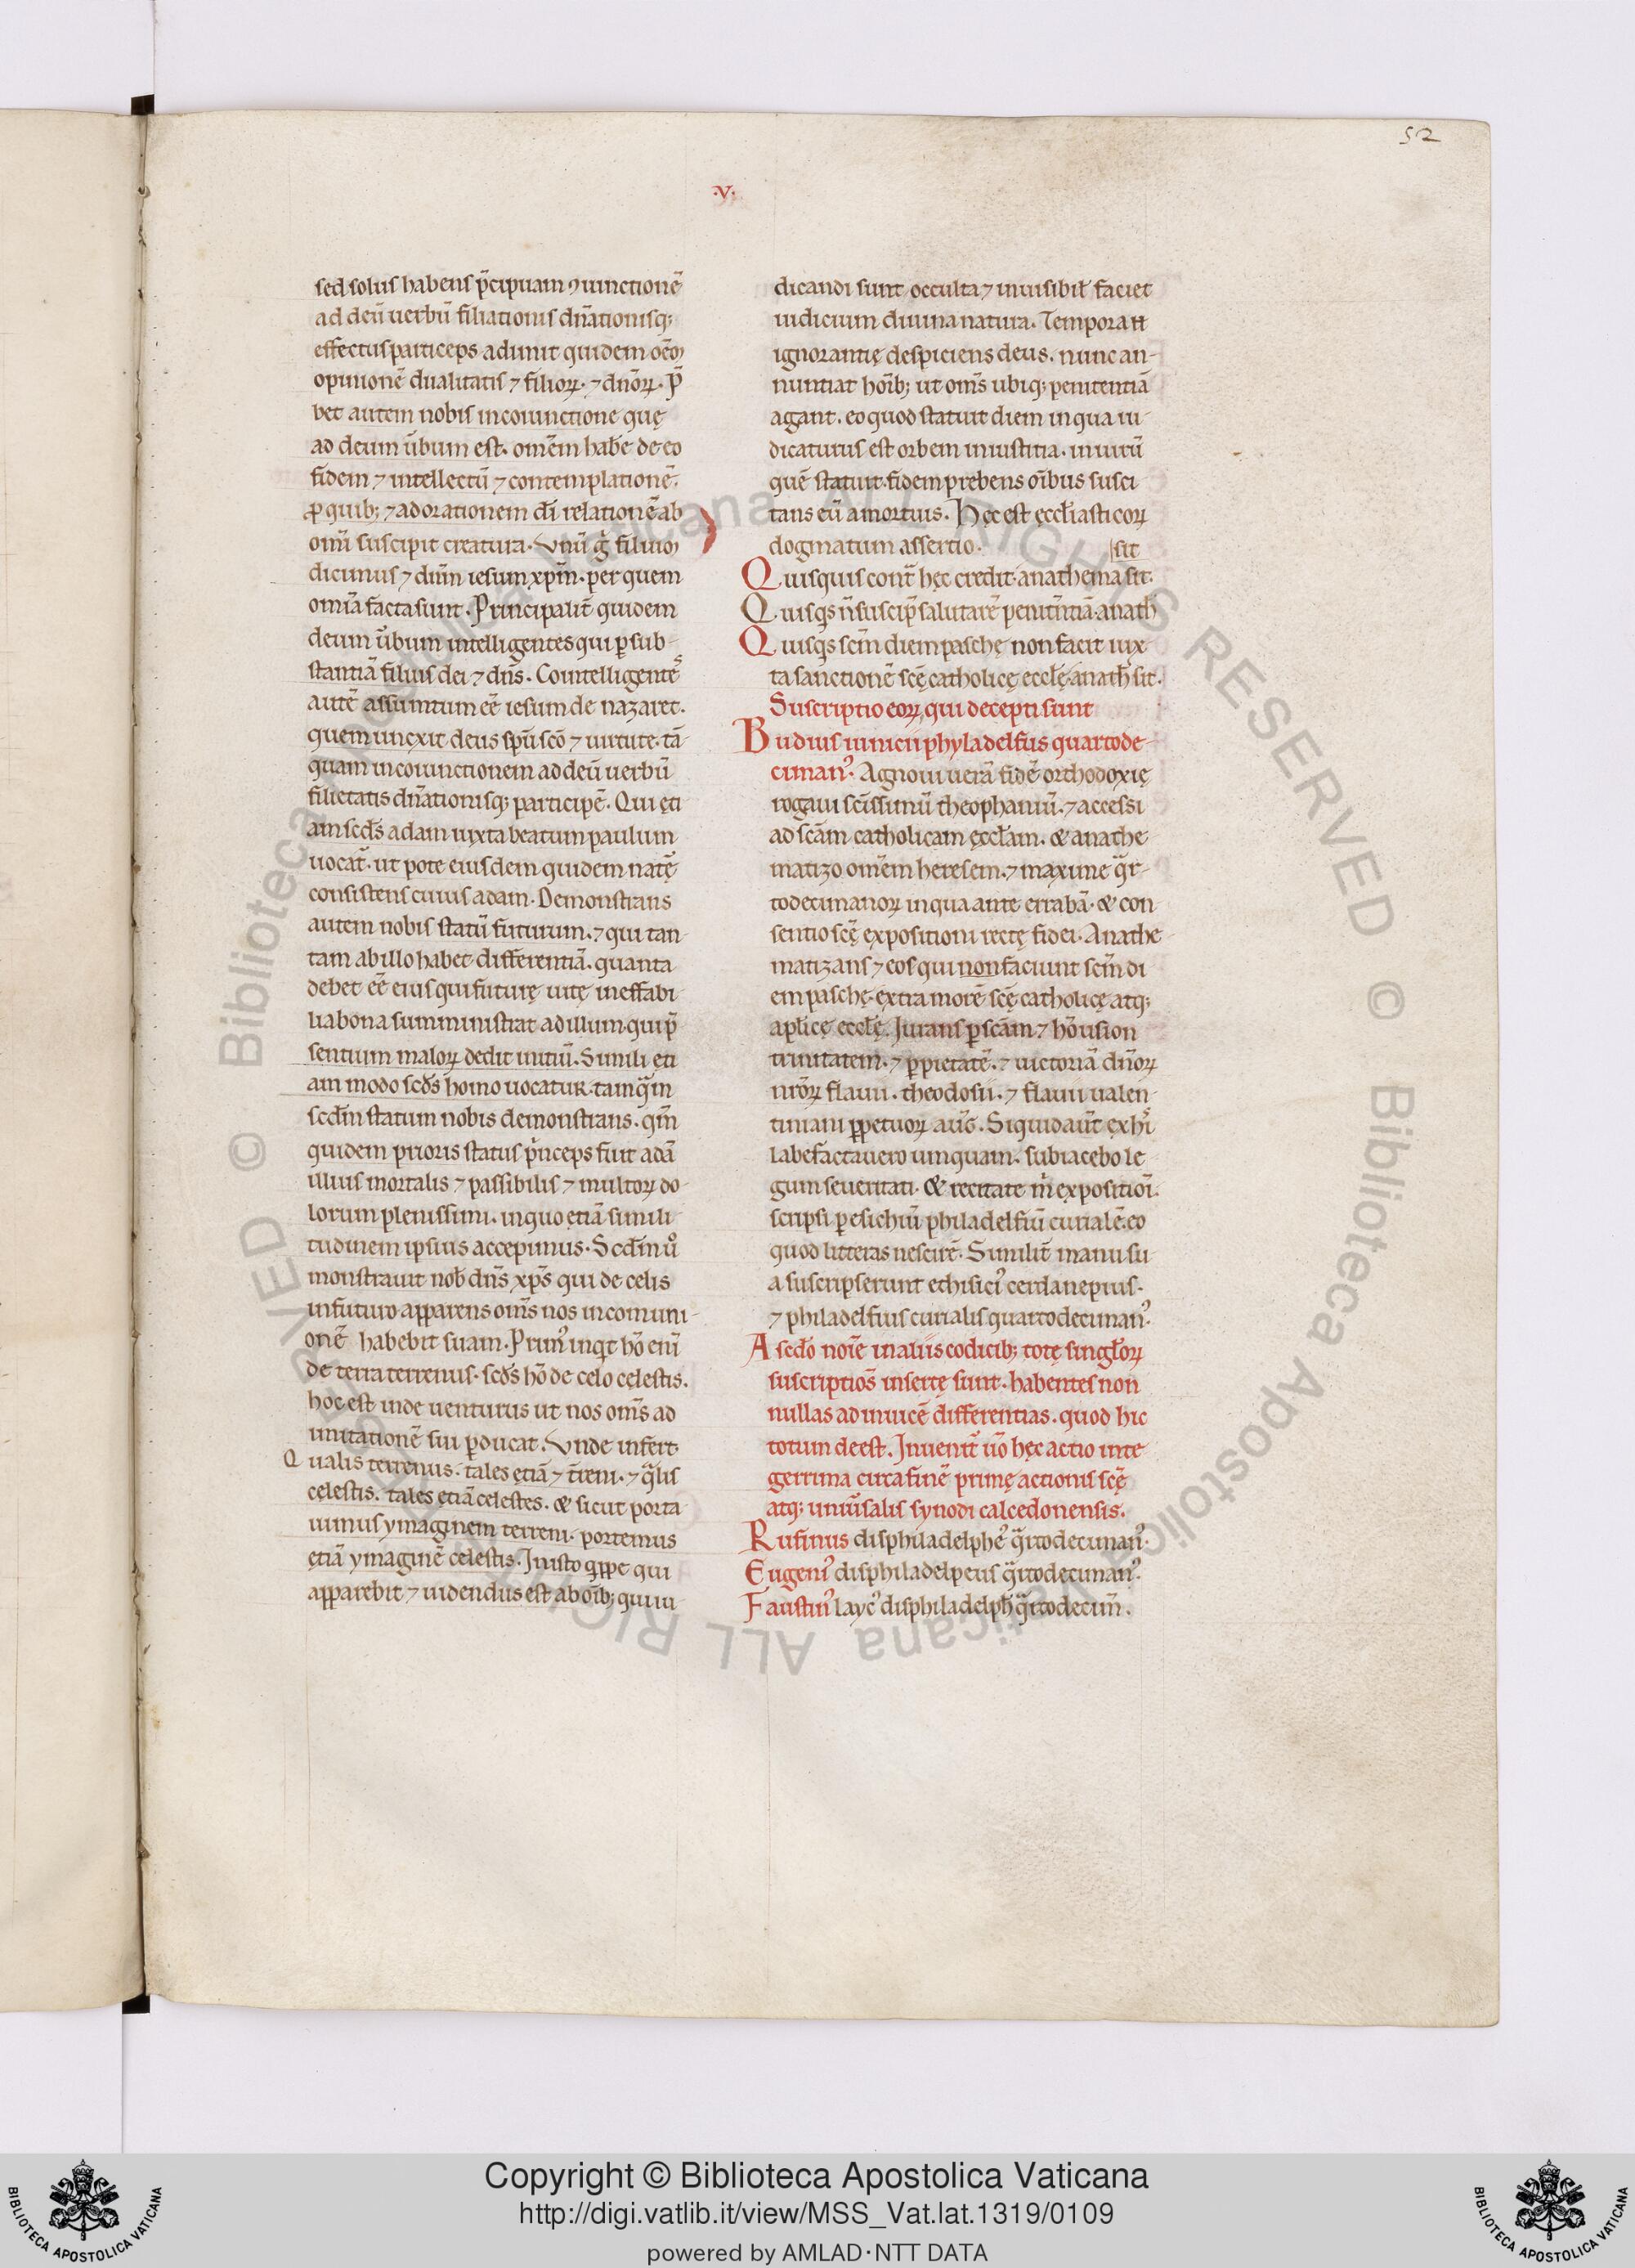 52
.v.
sed solus habens p̄cipuam ꝯiunctionē
ad deū uerbū filiationis dn̄ationisq;
effectus particeps adimit quidem oēm
opinionē dualitatis ⁊ filioꝝ. ⁊ dn̄oꝝ. P̄
bet autem nobis in coniunctione quę
ad deum ūbum est. omēm habe de eo
fidem ⁊ intellectū ⁊ contemplationē.
ꝓ quib; ⁊ adorationem dī relationē ab
omi suscipit creatura. Vnū g̊ filium
dicimus ⁊ dnm iesum xp̄m. per quem
omīa facta sunt. Principalit̄ quidem
deum ūbum intelligentes qui ꝑ sub-
stantiā filius dei ⁊ dn̄s. Cointelligentes
autē assumtum eē iesum de nazaret.
quem unexit deus spū scō ⁊ uirtute. tā-
quam in coniunctionem ad deū uerbū
filietatis dn̄ationisq; participē. Qui ęti
am scds adam iuxta beatum paulum
uocat̄. ut pote eiusdem quidem natę
consistens cuius adam. Demonstrans
autem nobis statū futurum. ⁊ qui tan-
tam ab illo habet differentiā. quanta
debet eē eius qui futurę uitę ineffabi
lia bona sumministrat ad illum qui p̄
sentium maloꝝ dedit initiū. Simili ęti
am modo scds homo uocatur. tamq̄m
scdm statum nobis demonstrans. qm̄
quidem prioris status p̄nceps fuit adā
illius mortalis ⁊ passibilis ⁊ multoꝝ do-
lorum plenissimi. in quo ętiā simili
tudinem ipsius accepimus. Scdm ū
monstrauit nob dn̄s xp̄s qui de celis
in futuro apparens oms nos in comuni-
onē habebit suam. Primꝰ inqt hō enī
de terra terrenus. scds hō de celo cęlestis.
hoc est inde uenturus ut nos oms ad
imitationē sui ꝑducat. Vnde infert.
Qualis terrenus. tales ętiā ⁊ t̄reni. ⁊ q̄lis
cęlestis. tales ętiā celestes. & sicut porta
uimus ymaginem terreni. portemus
ętiā ymaginē celestis. In isto qppe qui
apparebit ⁊ uidendus est ab oīb; qui iu-
dicandi sunt occulta ⁊ inuisibil̄ faciet
iudicium diuina natura. Tempora n̄
ignorantię despiciens deus. nunc an-
nuntiat hoīb; ut oms ubiq; penitentiā
agant. eo quod statuit diem in qua iu-
dicaturus est orbem in iustitia. in uirū
quē statuit. fidem prebens oībus susci
tans eū a mortuis. Hęc est ęccl̄iasticoꝝ
dogmatum assertio. |sit
Quisquis cont̄ hęc credit. anathema sit.
Quisqs n̄ suscip̄ salutarē penitn̄tiā. anath̄
Quisqs scm̄ diem paschę non facit iux
ta sanctionē scę catholicę ecclę anath̄ sit.
Suscriptio eoꝝ qui decepti sunt
Budius iunicii phyladelfus quartode-
cimanꝰ. Agnoui uerā fidē orthodoxię
rogaui scissimū theophaniū. ⁊ accessi
ad scām catholicam ęccl̄am. & anathe
matizo omēm heresem. ⁊ maxime q̄r-
todecimanoꝝ in qua ante errabā. & con
sentio scę expositioni rectę fidei. Anathe
matizans ⁊ eos qui non faciunt scm̄ di
em paschę extra morē scę catholicę atq;
apl̄icę ecclę. Iurans ꝑ scām ⁊ hōusion
trinitatem. ⁊ ꝑpietatē. ⁊ uictoriā dn̄oꝝ
nr̄oꝝ flauii. theodosii. ⁊ flauii ualen-
tiniani ꝑpetuoꝝ aūg. Siquid aūt ex hi
labefactauero umquam. subiacebo le-
gum seueritati. & recitate m̄ expositiōi
scripsi ꝑ esichiū philadelfiū curialē. eo
quod litteras nescirē. Similit̄ manu su
a suscripserunt ethisicꝰ cerdanepius.
⁊ philadelfius curialis quartodecimanꝰ.
A scdo noīe in aliis codicib; totę singl̄oꝝ
suscriptiōs insertę sunt. habentes non
nullas ad inuicē differentias. quod hic
totum deest. Inuenit̄ uō hęc actio inte
gerrima circa finē primę actionis scę
atq; uniūsalis synodi calcedonensis.
Rufinus disphiladelphēꝰ q̄rtodecimanꝰ.
Eugeniꝰ disphiladelpeus q̄rtodecimanꝰ.
Faustinꝰ laycꝰ disphiladelph̄ q̄rtodecim̄.
Copyright © Biblioteca Apostolica Vaticana
http://digi.vatlib.it/view/MSS_Vat.lat.1319/0109
powered by AMLAD·NTT DATA
BIBLIOTECA APOSTOLICA VATICANA
BIBLIOTECA APOSTOLICA VATICANA
© Biblioteca Apostolica Vaticana ALL RIGHTS RESERVED © Biblioteca Apostolica Vaticana ALL RIGHTS RESERVED